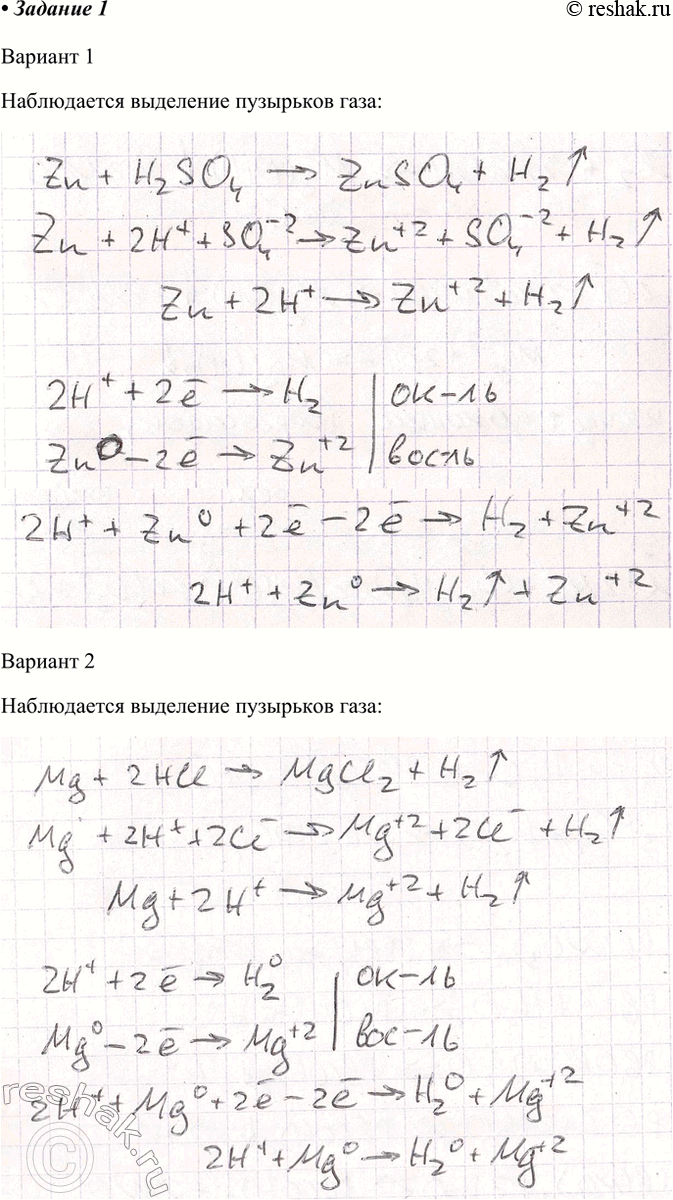 • Задание 1
© reshak.ru
Вариант 1
Наблюдается выделение пузырьков газа:
Zn + H₂SO₄ → ZnSO₄ + H₂↑
Zn + 2H⁺ + SO₄⁻² → Zn⁺² + SO₄⁻² + H₂↑
Zn + 2H⁺ → Zn⁺² + H₂↑
2H⁺ + 2ē → H₂ | ок-ль
Zn⁰ – 2ē → Zn⁺² | вос-ль
2H⁺ + Zn⁰ + 2ē – 2ē → H₂ + Zn⁺²
2H⁺ + Zn⁰ → H₂↑ + Zn⁺²
Вариант 2
Наблюдается выделение пузырьков газа:
Mg + 2HCl → MgCl₂ + H₂↑
Mg + 2H⁺ + 2Cl⁻ → Mg⁺² + 2Cl⁻ + H₂↑
Mg + 2H⁺ → Mg⁺² + H₂↑
2H⁺ + 2ē → H₂⁰ | ок-ль
Mg⁰ – 2ē → Mg⁺² | вос-ль
2H⁺ + Mg⁰ + 2ē – 2ē → H₂⁰ + Mg⁺²
2H⁺ + Mg⁰ → H₂⁰ + Mg⁺²
reshak.ru